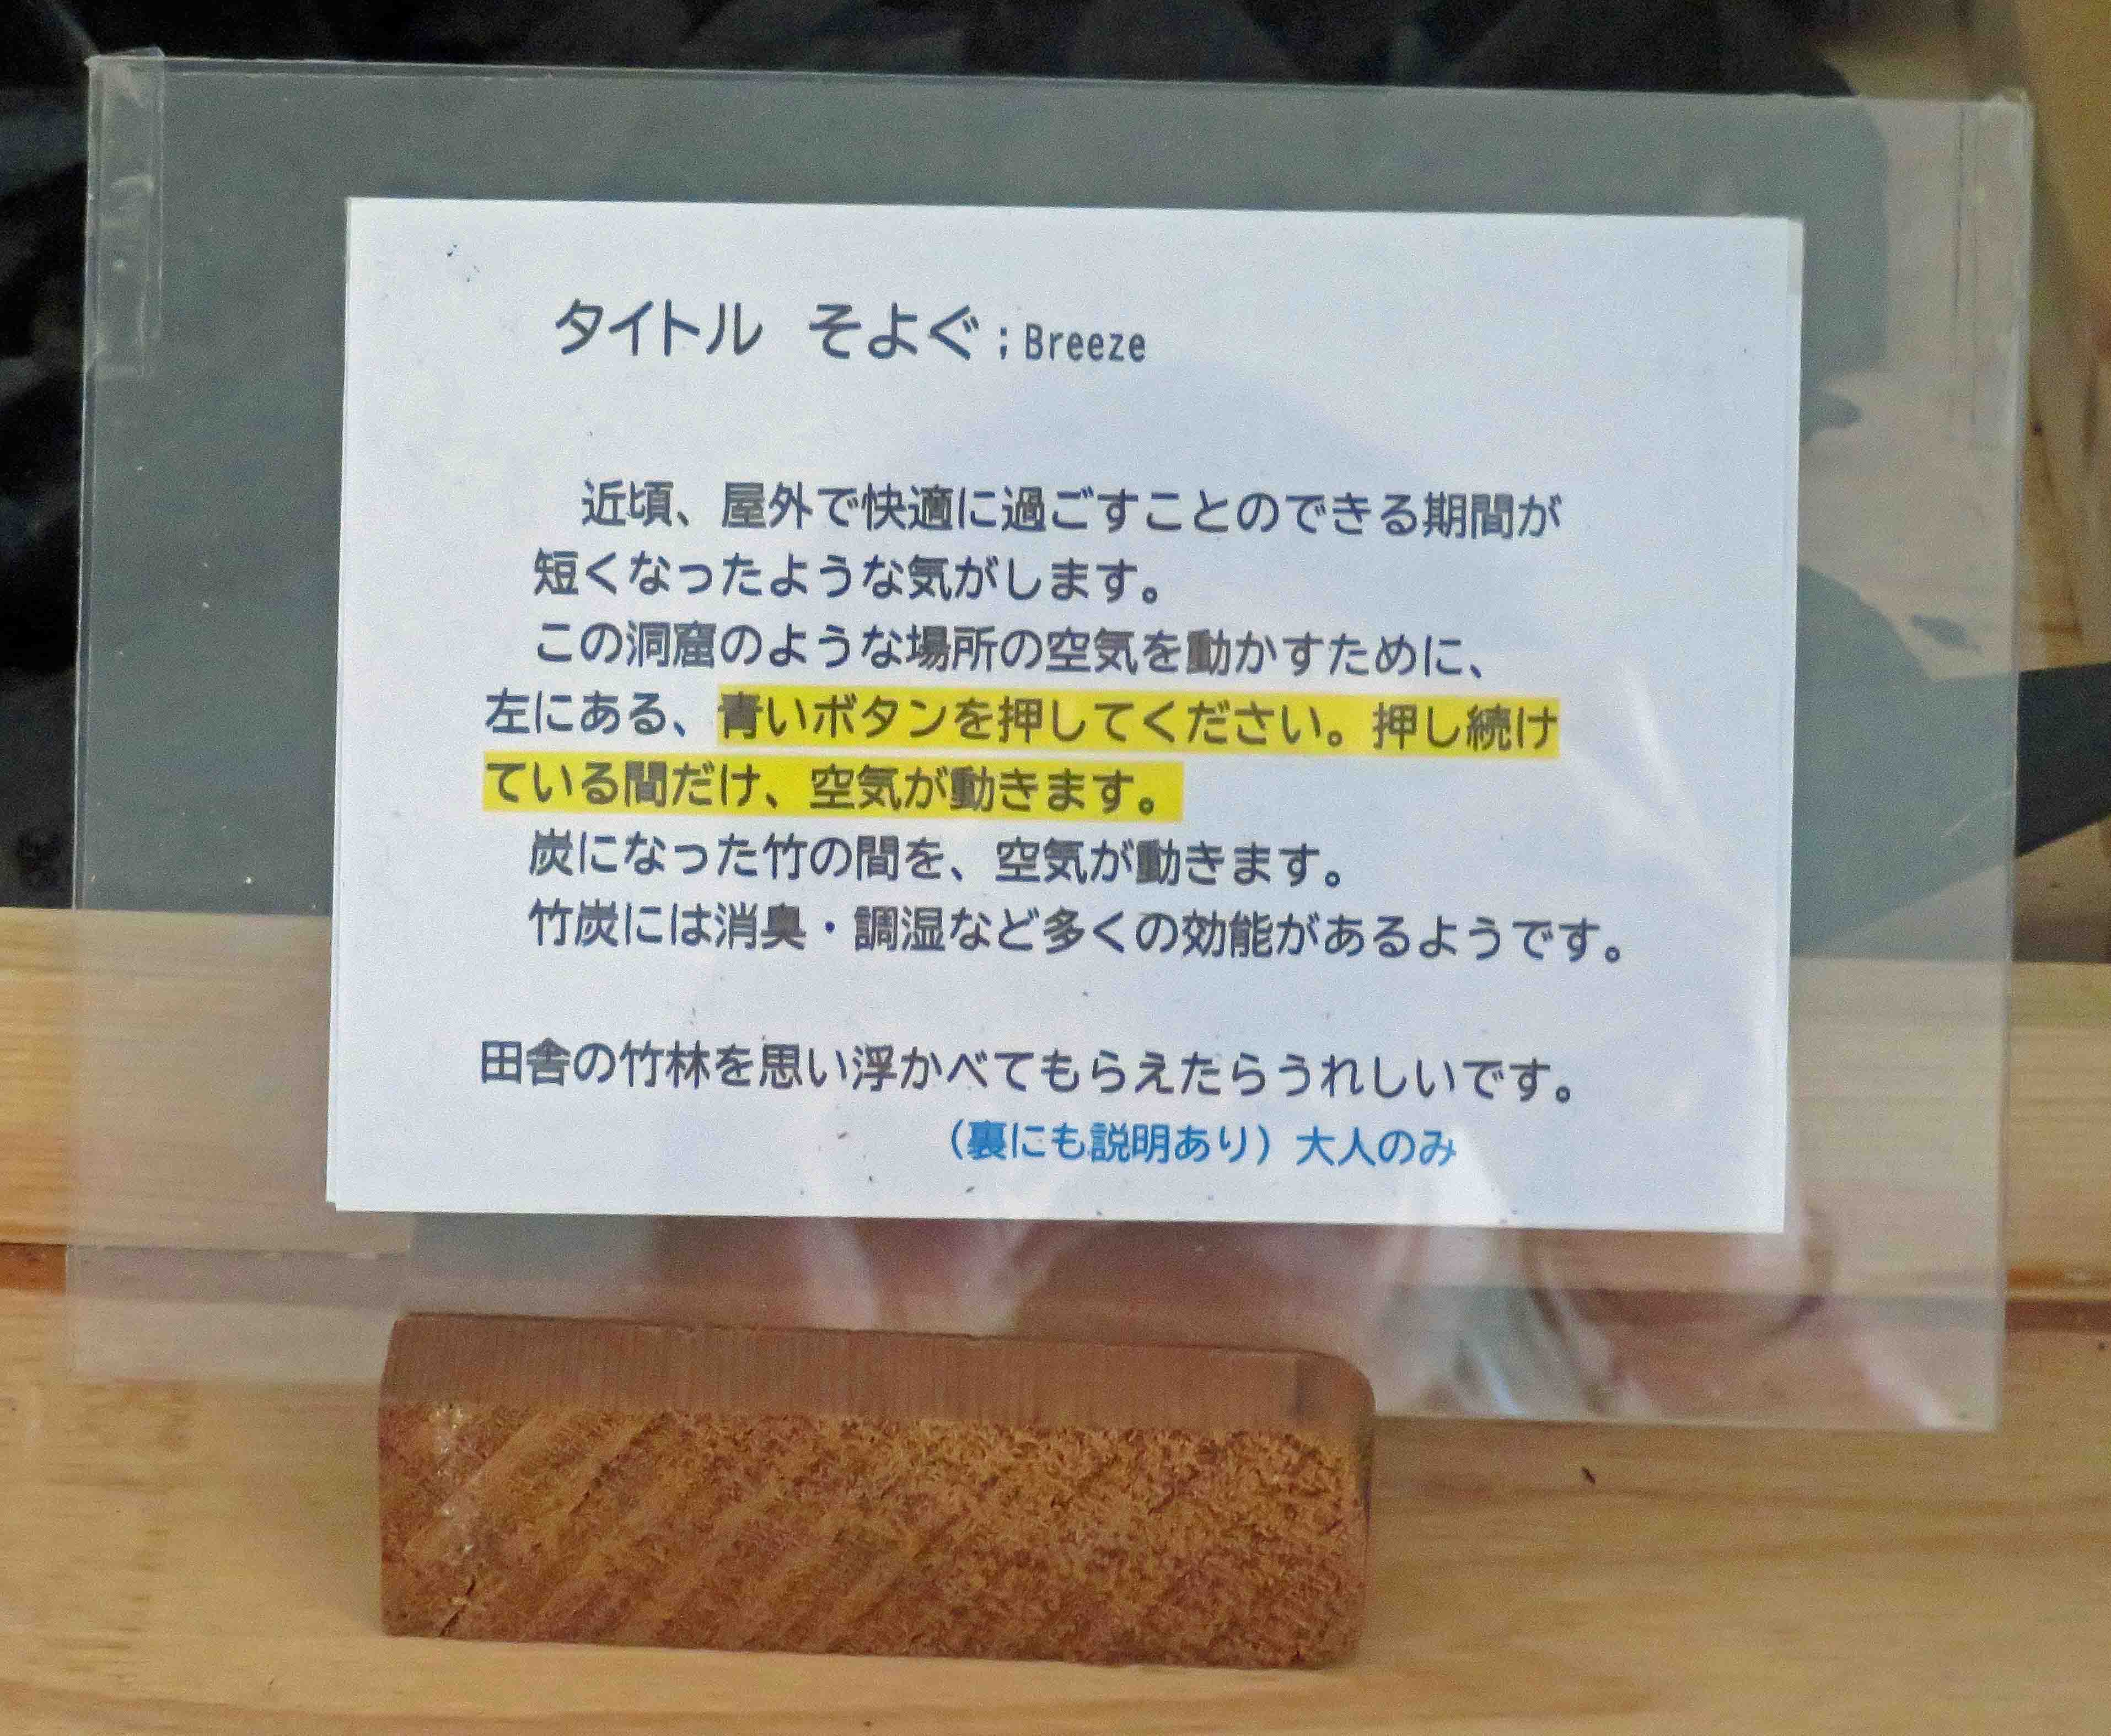 タイトル　そよぐ；Breeze
近頃、屋外で快適に過ごすことのできる期間が
短くなったような気がします。
この洞窟のような場所の空気を動かすために、
左にある、青いボタンを押してください。押し続け
ている間だけ、空気が動きます。
炭になった竹の間を、空気が動きます。
竹炭には消臭・調湿など多くの効能があるようです。
田舎の竹林を思い浮かべてもらえたらうれしいです。
（裏にも説明あり）大人のみ